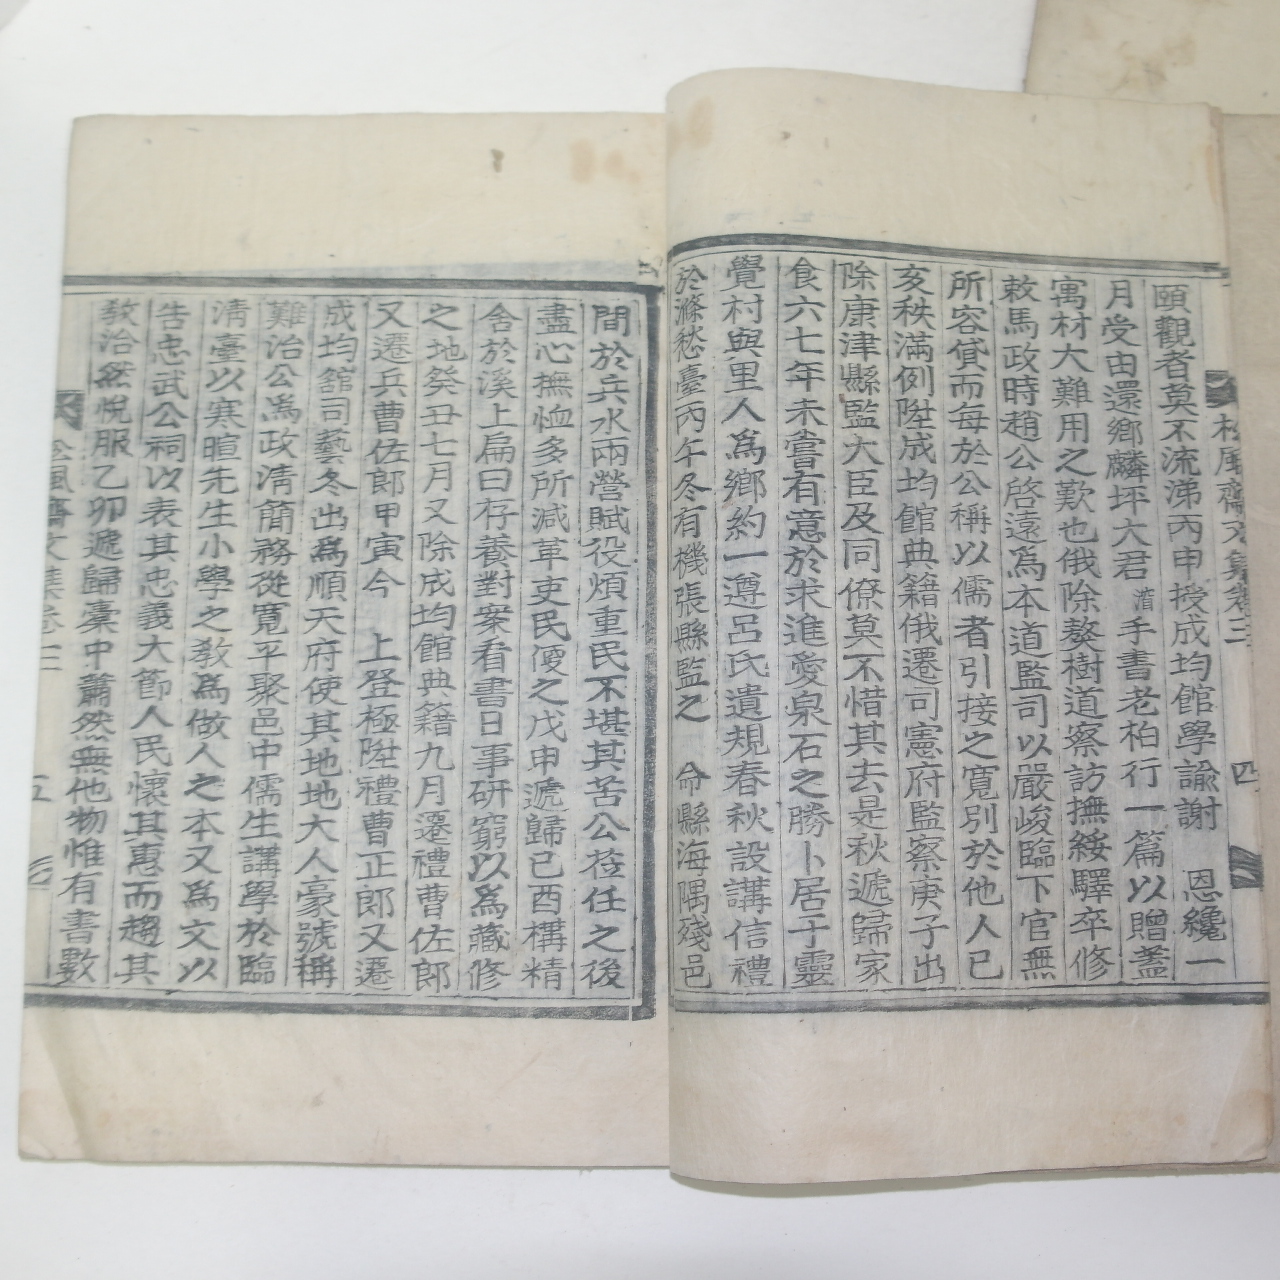 松風齋文集卷三
四
頤觀者莫不流涕丙申授成均館學諭謝 恩纔一
月受由還鄉麟坪大君 㴭 手書老柏行一篇以贈蓋
寓材大難用之歎也俄除獒樹道察訪撫綏驛卒修
敕馬政時趙公啓遠爲本道監司以嚴峻臨下官無
所容貸而每於公稱以儒者引接之寬別於他人已
亥秩滿例陞成均館典籍俄遷司憲府監察庚子出
除康津縣監大臣及同僚莫不惜其去是秋遞歸家
食六七年未嘗有意於求進愛泉石之勝卜居于靈
覺村與里人爲鄉約一遵呂氏遺規春秋設講信禮
於滌愁臺丙午冬有機張縣監之 命縣海隅殘邑
間於兵水兩營賦役煩重民不堪其苦公莅任之後
盡心撫恤多所減革吏民便之戊申遞歸己酉構精
舍於溪上扁曰存養對案看書日事研窮以爲藏修
之地癸丑七月又除成均館典籍九月遷禮曹佐郎
又遷兵曹佐郎甲寅今 上登極陞禮曹正郎又遷
成均舘司藝冬出爲順天府使其地地大人豪號稱
難治公爲政淸簡務從寬平聚邑中儒生講學於臨
淸臺以寒暄先生小學之敎爲做人之本又爲文以
告忠武公祠以表其忠義大節人民懷其惠而趨其
敎治然悅服乙卯遞歸橐中蕭然無他物惟有書數
松風齋文集卷三
五